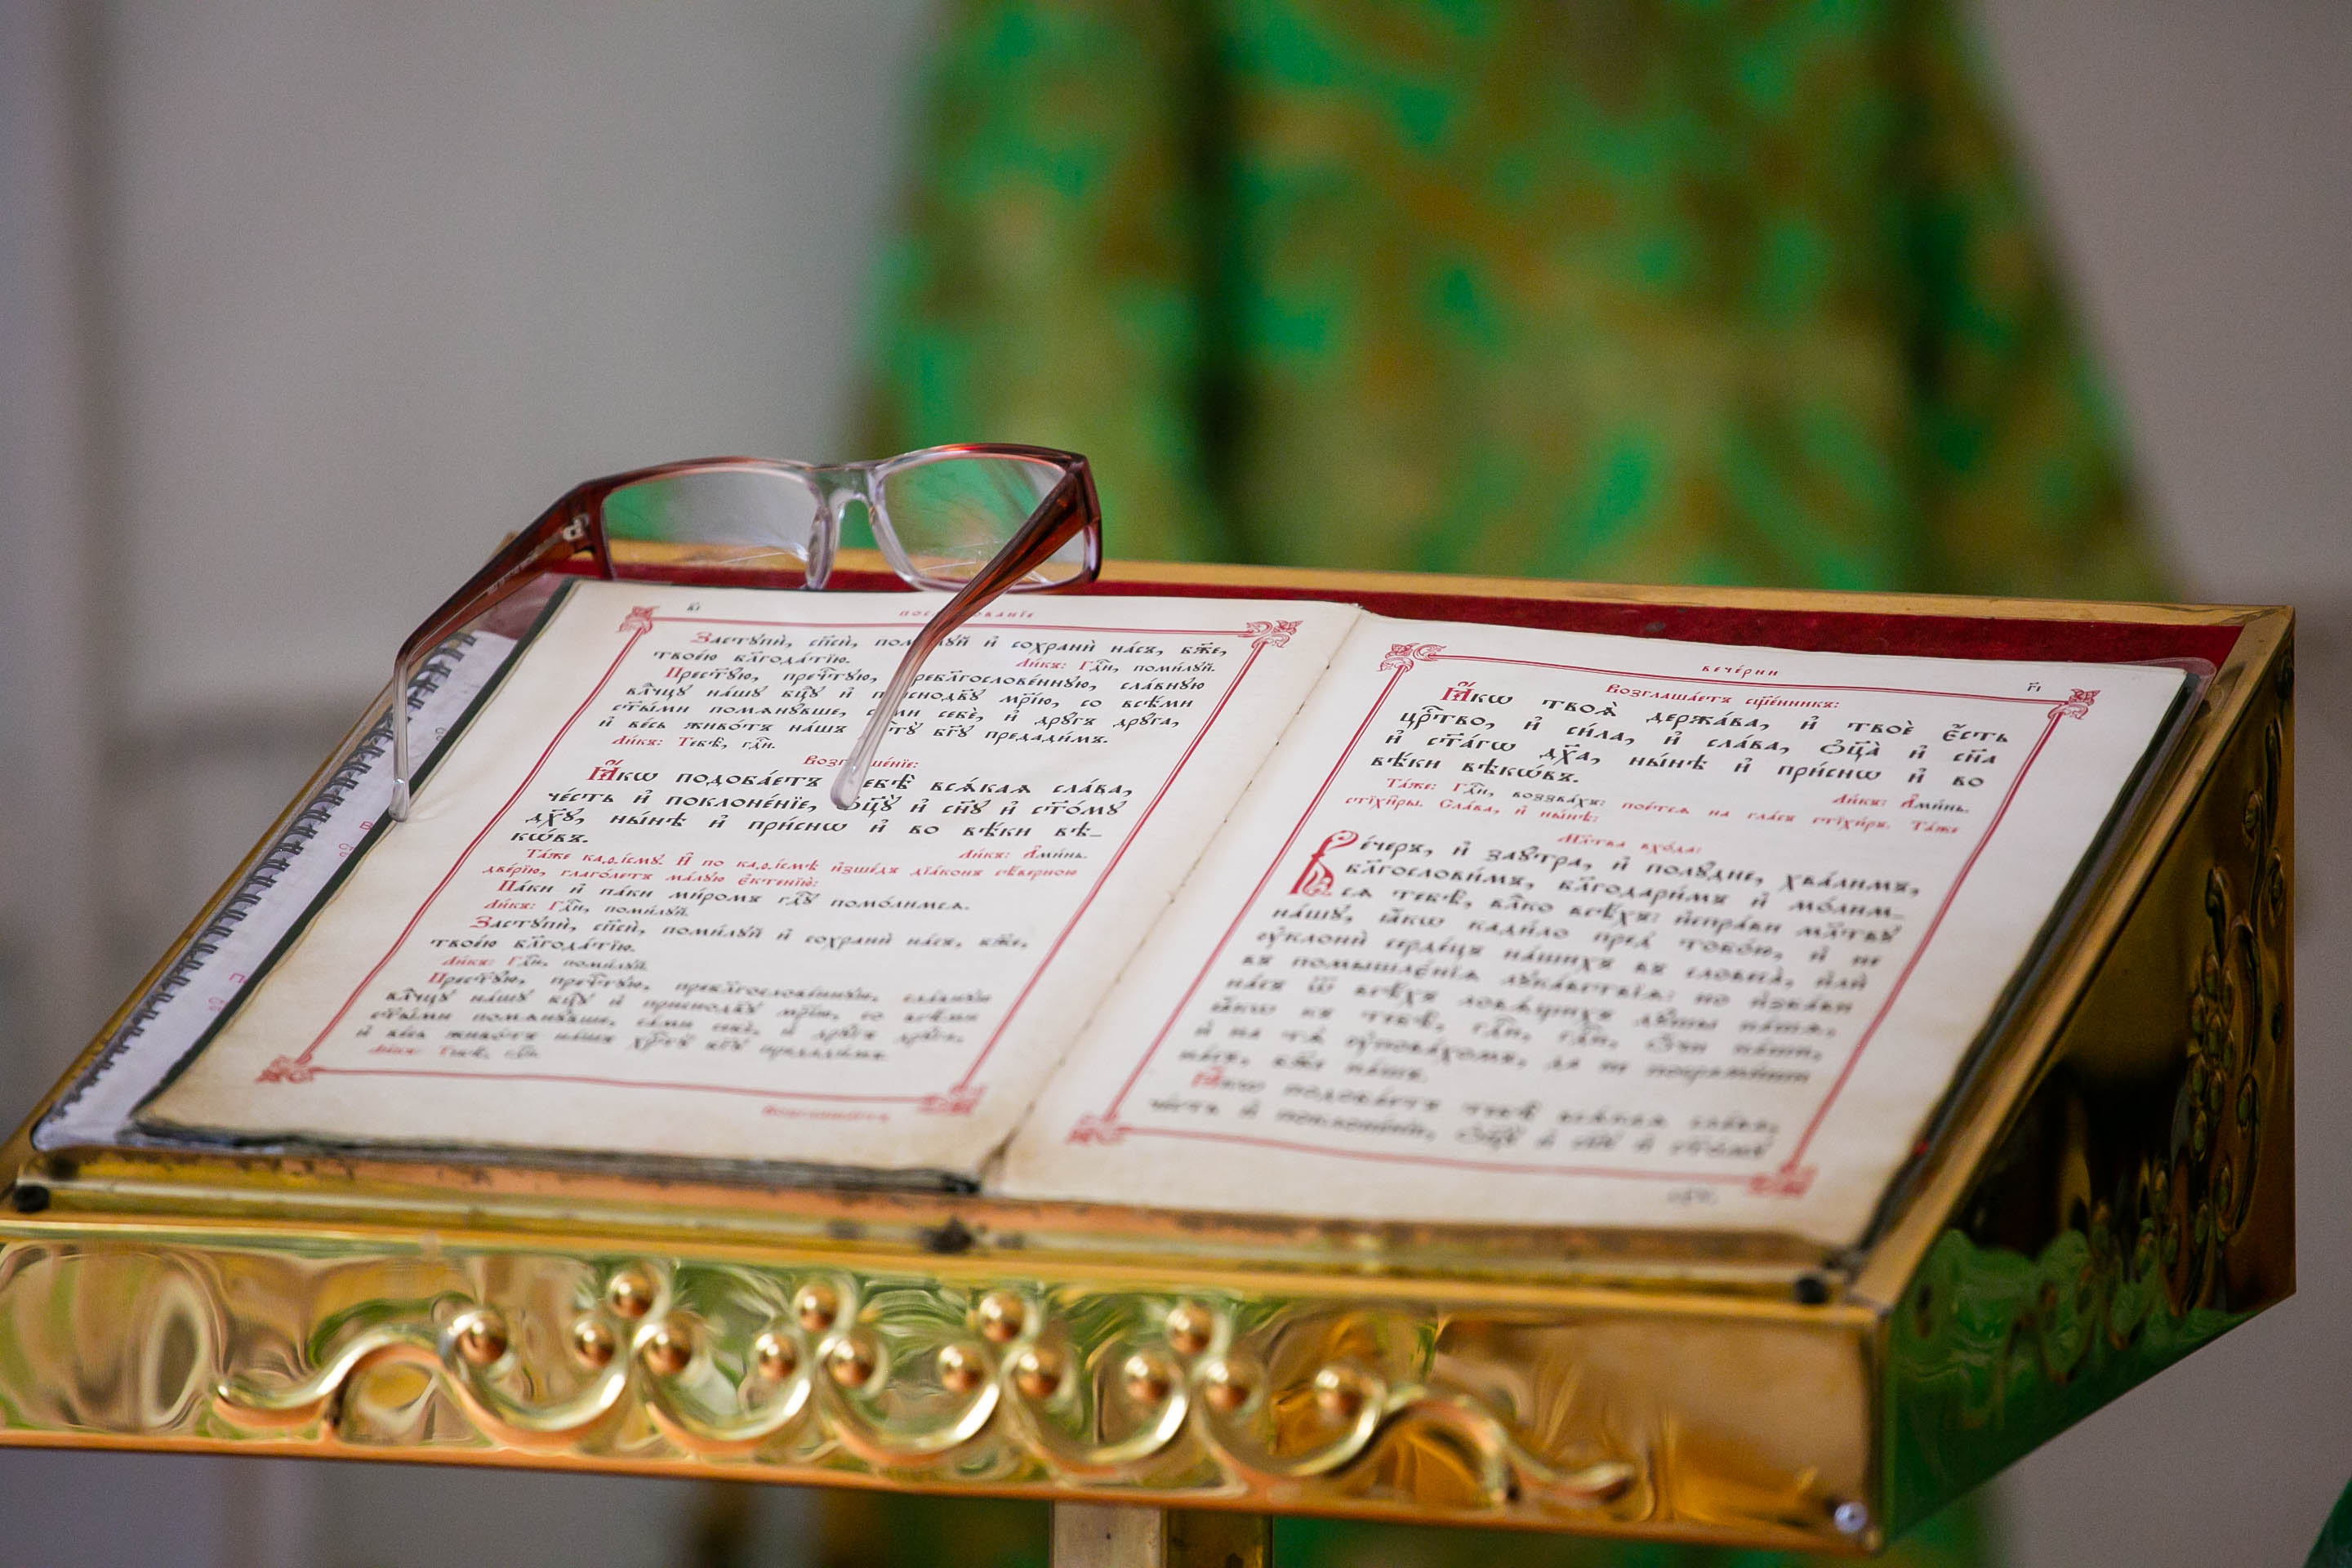 в҃і
Застꙋпѝ, сп҃сѝ, и҆ сохранѝ на́съ, бж҃е,
твое́ю блг҃ода́тїю.
Ли́къ: Гдⷭ҇и, поми́лꙋй.
сла́внꙋю
влⷣчцꙋ на́шꙋ бцⷣꙋ и҆ мр҃і́ю, со всѣ́ми
ст҃ы́ми помѧнꙋ́вше, себѐ, и҆ дрꙋ́гъ дрꙋ́га,
и҆ ве́сь живо́тъ на́шъ бг҃ꙋ предади́мъ.
Ли́къ: Тебѣ̀, гдⷭ҇и.
Ꙗ҆́кѡ подоба́етъ всѧ́каѧ сла́ва,
че́сть и҆ поклоне́нїе, ѻ҆ц҃ꙋ̀ и҆ сн҃ꙋ и҆ ст҃о́мꙋ
дх҃ꙋ, ны́нѣ и҆ при́снѡ и҆ во вѣ́ки вѣ-
кѡ́въ.
Ли́къ: А҆ми́нь.
Та́же каѳі́смꙋ. И҆ по каѳі́смѣ и҆зше́дъ дїа́конъ сѣ́верною
две́рїю, глаго́летъ ма́лꙋю є҆ктенїю̀:
Па́ки и҆ па́ки ми́ромъ гдⷭ҇ꙋ помо́лимсѧ.
Ли́къ: Гдⷭ҇и, поми́лꙋй.
Застꙋпѝ, сп҃сѝ, поми́лꙋй и҆ сохранѝ на́съ, бж҃е,
твое́ю блг҃ода́тїю.
Ли́къ: Гдⷭ҇и, поми́лꙋй.
Прест҃ꙋ́ю, пречⷭ҇тꙋю, пребл҃гослове́ннꙋю, сла́внꙋю
влⷣчцꙋ на́шꙋ бцⷣꙋ и҆ приснодв҃ꙋ мр҃і́ю, со всѣ́ми
ст҃ы́ми помѧнꙋ́вше, са́ми себѐ, и҆ дрꙋ́гъ дрꙋ́га,
и҆ ве́сь живо́тъ на́шъ хрⷭ҇тꙋ̀ бг҃ꙋ предади́мъ.
Ли́къ: Тебѣ̀, гдⷭ҇и.
Возглаша́етъ
вече́рни
г҃і
Возглаша́етъ сщ҃е́нникъ:
Ꙗ҆́кѡ твоѧ̀ держа́ва, и҆ твоѐ є҆́сть
црⷭ҇тво, и҆ си́ла, и҆ сла́ва, ѻ҆ц҃а̀ и҆ сн҃а
и҆ ст҃а́гѡ дх҃а, ны́нѣ и҆ при́снѡ и҆ во
вѣ́ки вѣкѡ́въ.
Ли́къ: А҆ми́нь.
Та́же: Гдⷭ҇и, воззва́хъ: пое́тсѧ на гла́съ стїхи́ра. Та́же
стїхи̑ры. Сла́ва, и҆ ны́нѣ:
Мл҃тва вхо́да:
Ве́черъ, и҆ заꙋ́тра, и҆ полꙋ́дне, хва́лимъ,
благослови́мъ, благодари́мъ и҆ мо́лим-
сѧ тебѣ̀, влⷣко всѣ́хъ: и҆спра́ви мл҃твꙋ
на́шꙋ, ꙗ҆́кѡ кади́ло пред̾ тобо́ю, и҆ не
ᲂу҆клонѝ сердє́цъ на́шихъ въ словеса̀, и҆лѝ
въ помышлє́нїѧ лꙋка́вствїѧ: но и҆зба́ви
на́съ ѿ всѣ́хъ ловѧ́щихъ дꙋ́шы на́шѧ.
ꙗ҆́кѡ къ тебѣ̀, гдⷭ҇и, гдⷭ҇и, ѻ҆́чи на́ши,
и҆ на тѧ̀ ᲂу҆пова́хомъ, да не посрами́ши
на́съ, бж҃е на́шъ.
Ꙗ҆́кѡ подоба́етъ тебѣ̀ всѧ́каѧ сла́ва,
че́сть и҆ поклоне́нїе, ѻ҆ц҃ꙋ̀ и҆ сн҃ꙋ и҆ ст҃о́мꙋ